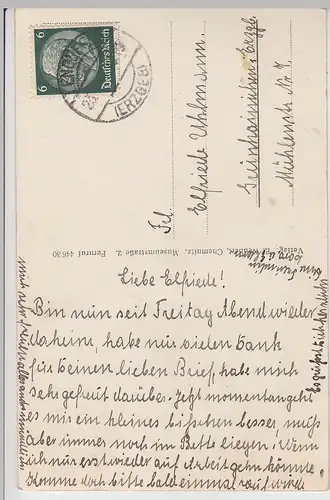 6
6
Deutsches Reich
(ERZGEB)
Frl.
Elfriede Uhlmann.
Mühlenstr. Nr. 7
Verlag Chemnitz, Museumstraße 2. Fernruf 44630
Liebe Elfriede!
Bin nun seit Freitag Abend wieder
daheim, habe nun vielen Dank
für Deinen lieben Brief, habe mich
sehr gefreut darüber. Jetzt momentan geht
es mir ein kleines bischen besser, muß
aber immer noch im Bette liegen. Wenn
ich nur erst wieder auf Arbeit gehn könnte,
Komme doch bitte bald einmal rauf würde
mich
Es grüßt Dich herzlich